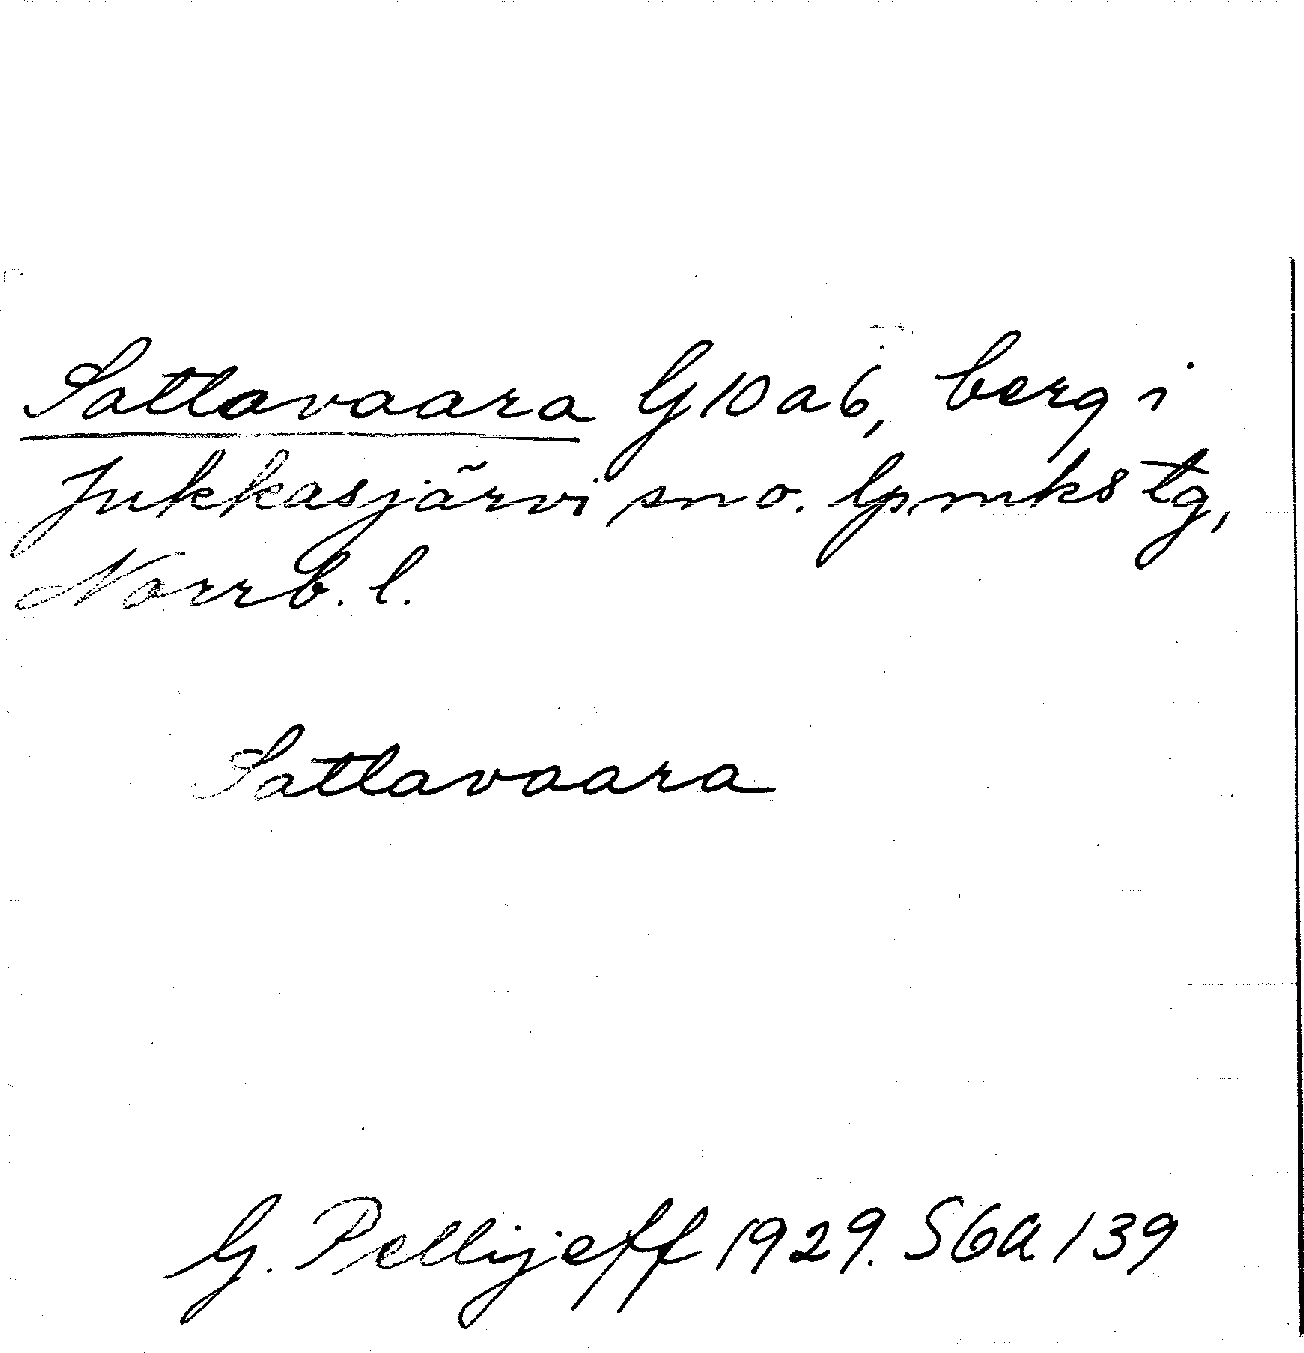 Sattavaara G10a6, berg i
Jukkasjärvi sno. lpmks tg,
Norrb. l.
Sattavaara
G. Pellijeff 1929. S6a 139